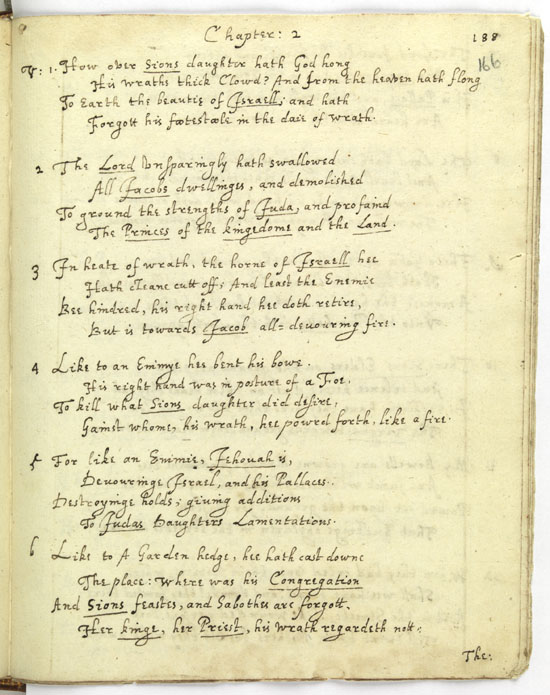 Chapter: 2
188
166
V: 1. How over Sions daughter hath God hong
His wraths thick Clowd? And from the heaven hath flong
To Earth the beautie of Israell, and hath
Forgott his footestoole in the daie of wrath.
2 The Lord Unsparingly hath swallowed
All Jacobs dwellinges, and demolished
To ground the strengths of Juda, and profaind
The Princes of the kingedome and the Land.
3 In heate of wrath, the horne of Israell hee
Hath cleane cutt off; And least the Enemie
Bee hindred, his right hand hee doth retire,
But is towards Jacob all=devouring fire.
4 Like to an Enimye hee bent his bowe.
His right hand was in posture of a Foe.
To kill what Sions daughter did desire,
Gainst whome, his wrath, hee powrd forth, like a fire.
5 For like an Enimie, Jehovah is,
Devouringe Israel, and his Pallaces.
Destroyinge holds; giving additions
To Judas Daughters Lamentations.
6 Like to A Garden hedge, hee hath cast downe
The place: Where was his Congregation
And Sions feastes, and Sabothes are forgott.
Her kinge, her Priest, his wrath regardeth nott.
The: